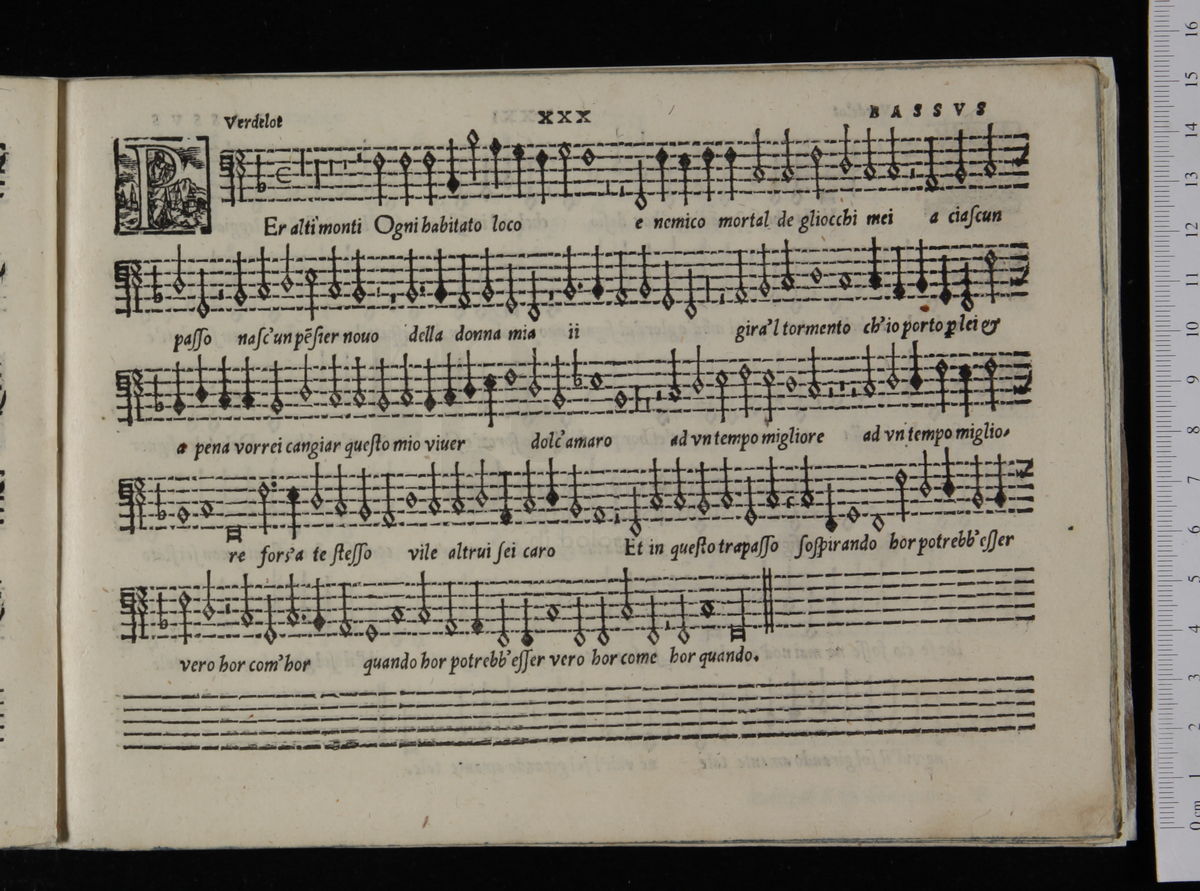 Verdelot XXX BASSVS
PEr alti monti Ogni habitato loco e nemico mortal de gliocchi mei a ciaſcun
paſſo naſc'un pēſier nouo della donna mia ii gira'l tormento ch'io porto ꝑ lei &
a pena vorrei cangiar queſto mio viuer dolc'amaro ad vn tempo migliore ad vn tempo miglio-
re forſ'a te ſteſſo vile altrui ſei caro Et in queſto trapaſſo ſoſpirando hor potrebb'eſſer
vero hor com'hor quando hor potrebb'eſſer vero hor come hor quando.
0 cm 1 2 3 4 5 6 7 8 9 10 11 12 13 14 15 16